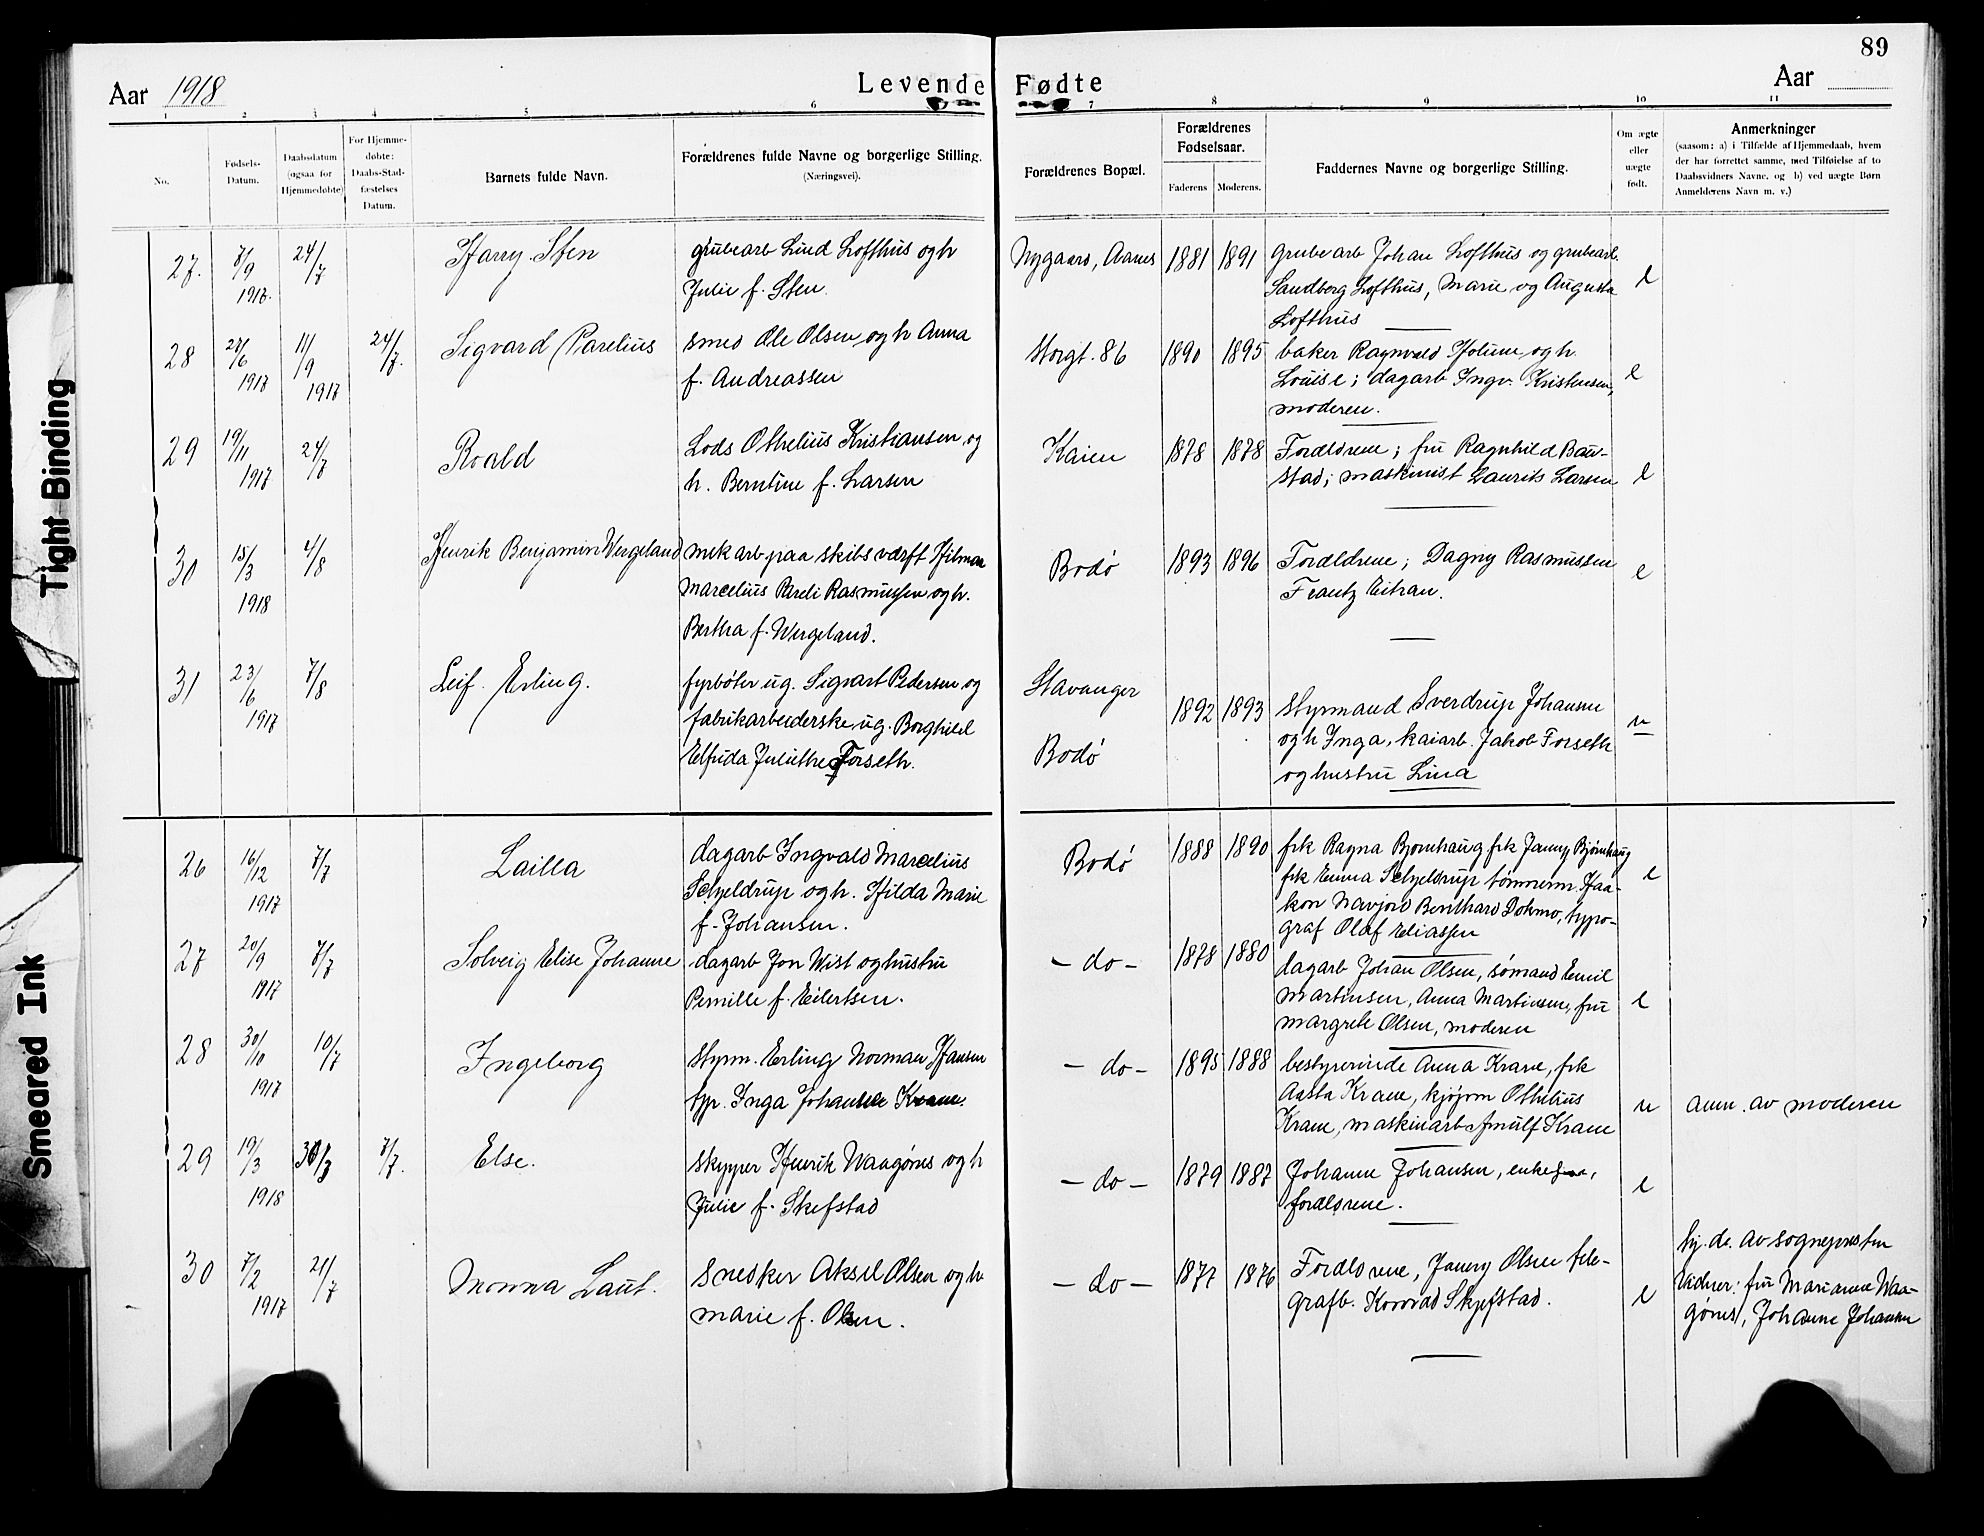 89
Aar 1918
Levende Fødte
Aar
1 2 3 4 5 6 7 8 9 10 11
No.
Fødsels-
Datum.
Daabsdatum
(ogsaa for
Hjemmedøbte)
For Hjemme-
døbte:
Daabs-Stad-
fæstelses
Datum.
Barnets fulde Navn.
Forældrenes fulde Navne og borgerlige Stilling.
(Næringsvei).
Forældrenes Bopæl.
Forældrenes
Fødselsaar.
Faderens Moderens.
Faddernes Navne og borgerlige Stilling.
Om ægte
eller
uægte
født.
Anmerkninger
(saasom: a) i Tilfælde af Hjemmedaab, hvem
der har forrettet samme, med Tilføielse af to
Daabsvidners Navne, og b) ved uægte Børn
Anmelderens Navn m. v.)
27. 7/9 1917. 24/7
Harry Sten
grubearb Lind Lofthus og h
Julie f. Sten
Nygaard, Aanes 1881 1891
grubearb Johan Lofthus og grubearb.
Sandberg Lofthus, Marie og Augusta
Lofthus
e
28 27/6 1917 11/9 1917 24/7.
Sigvard Parelius
smed Ole Olsen og h Anna
f. Andreassen
Storgt. 86 1890 1895
baker Ragnvald Holum og h.
Louise; dagarb Ingv. Kristensen,
moderen.
e
29 19/11 1917 24/7
Roald
Lods Othelius Kristiansen og
h. Berntine f. Larsen
Kaien 1878 1878
Forældrene; fru Ragnhild Bau-
stad; maskinist Laurits Larsen
e
30 15/3 1918 4/8
Henrik Benjamin Wergeland
mek arb paa skibsværft Hilmar
Marcelius Pareli Rasmussen og h.
Bertha f. Wergeland.
Bodø 1893 1896
Forældrene; Dagny Rasmussen
Frantz Eitran.
e
31 23/6 1917 7/8
Leif Erling.
fyrbøter ug. Sigvart Pedersen og
fabrikarbeiderske ug. Borghild
Elfrida Julithe Forseth.
Stavanger
Bodø
1892 1893
Styrmand Sverdrup Johansen
og h Inga, kaiarb. Jakob Forseth
og hustru Lina
u
26 16/12 1917 7/7
Lailla
dagarb Ingvald Marcelius
Schjeldrup og h. Hilda Marie
f. Johansen.
Bodø 1888 1890
frk Ragna Bjørnhaug frk Janny Bjørnhaug
frk Emma Schjeldrup tømmerm. Haa-
kon Navjord Bernhard Dokmo, typo-
graf Olaf Eliassen
e
27 20/9 1917 7/7
Solveig Elise Johanne
dagarb Jon Wist og hustru
Pernille f. Eilertsen.
- do - 1878 1880
dagarb Johan Olsen, sømand Emil
Martinsen, Anna Martinsen, fru
Margrete Olsen, moderen
e
28 30/10 1917 10/7
Ingeborg
Styrm. Erling Norman Hansen
tjp. Inga Johanne Krane.
- do - 1895 1888
bestyrerinde Anna Krane, frk
Aasta Krane, kjøpm Othelius
Krane, maskinarb Arnulf Krane
u
anm. av moderen
29 19/3 1918 30/3 7/7.
Else.
skipper Henrik Waagønes og h
Julie f. Skefstad
- do - 1879 1887
Johanne Johansen, enkefru,
forældrene.
e
30 7/2 1917 21/7
Monna Laut.
Snedker Aksel Olsen og h
Marie f. Olsen.
- do - 1877 1876
Forældrene, Janny Olsen tele-
grafb. Konrad Skjefstad.
e
hj. dø. av sognepresten
Vidner: fru Marianne Waa-
gønes, Johanne Johansen
Tight Binding
Smeared Ink